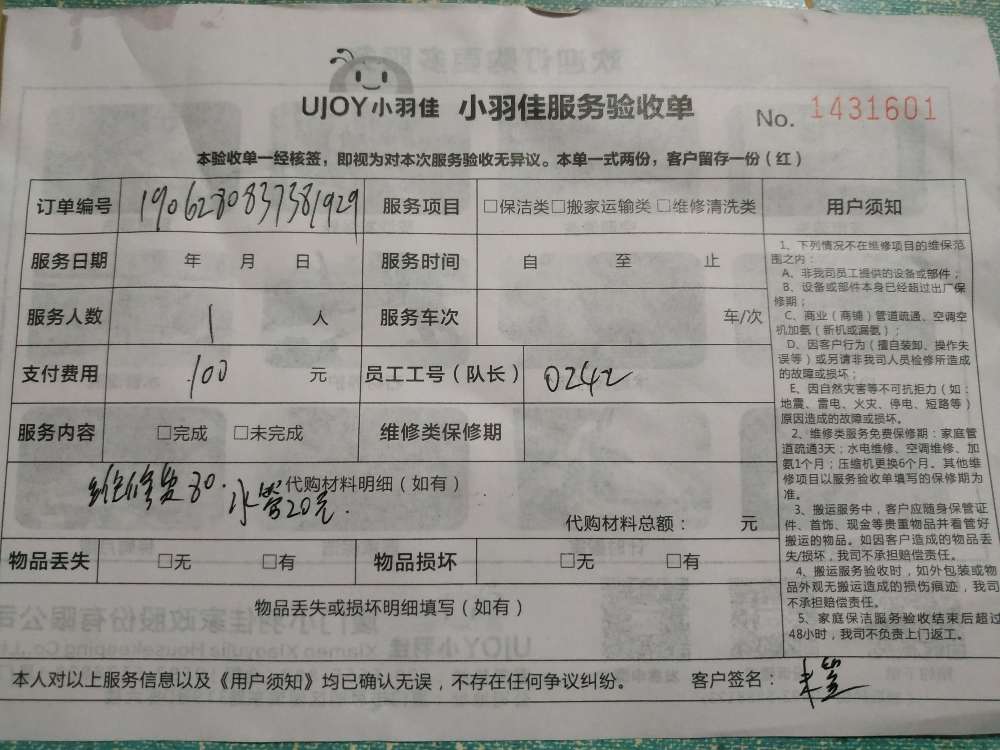 UJOY小羽佳 小羽佳服务验收单 No. 1431601
本验收单一经核签，即视为对本次服务验收无异议。本单一式两份，客户留存一份（红）
订单编号 1906280837381929 服务项目 □保洁类□搬家运输类 □维修清洗类
服务日期 年 月 日 服务时间 自 至 止
服务人数 1 人 服务车次 车/次
支付费用 100 元 员工工号（队长） 0242
服务内容 □完成 □未完成 维修类保修期
代购材料明细（如有）
维修费80. 水管20元.
代购材料总额： 元
物品丢失 □无 □有 物品损坏 □无 □有
物品丢失或损坏明细填写（如有）
用户须知
1、下列情况不在维修项目的维保范
围之内：
A、非我司员工提供的设备或部件；
B、设备或部件本身已经超过出厂保
修期；
C、商业（商铺）管道疏通、空调空
机加氨（新机或漏氨）；
D、因客户行为（擅自装卸、操作失
误等）或另请非我司人员检修所造成
的故障或损坏；
E、因自然灾害等不可抗拒力（如：
地震、雷电、火灾、停电、短路等）
原因造成的故障或损坏。
2、维修类服务免费保修期：家庭管
道疏通3天；水电维修、空调维修、加
氨1个月；压缩机更换6个月。其他维
修项目以服务验收单填写的保修期为
准。
3、搬运服务中，客户应随身保管证
件、首饰、现金等贵重物品并看管好
搬运的物品。如因客户造成的物品丢
失/损坏，我司不承担赔偿责任。
4、搬运服务验收时，如外包装或物
品外观无搬运造成的损伤痕迹，我司
不承担赔偿责任。
5、家庭保洁服务验收结束后超过
48小时，我司不负责上门返工。
本人对以上服务信息以及《用户须知》均已确认无误，不存在任何争议纠纷。 客户签名：